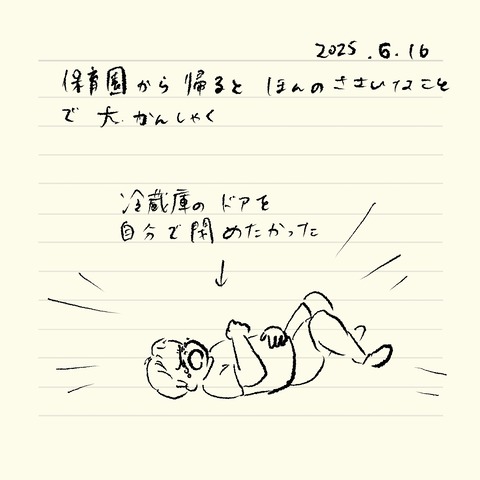 2025.6.16
保育園から帰ると ほんのささいなこと
で 大かんしゃく
冷蔵庫の ドアを
自分で閉めたかった